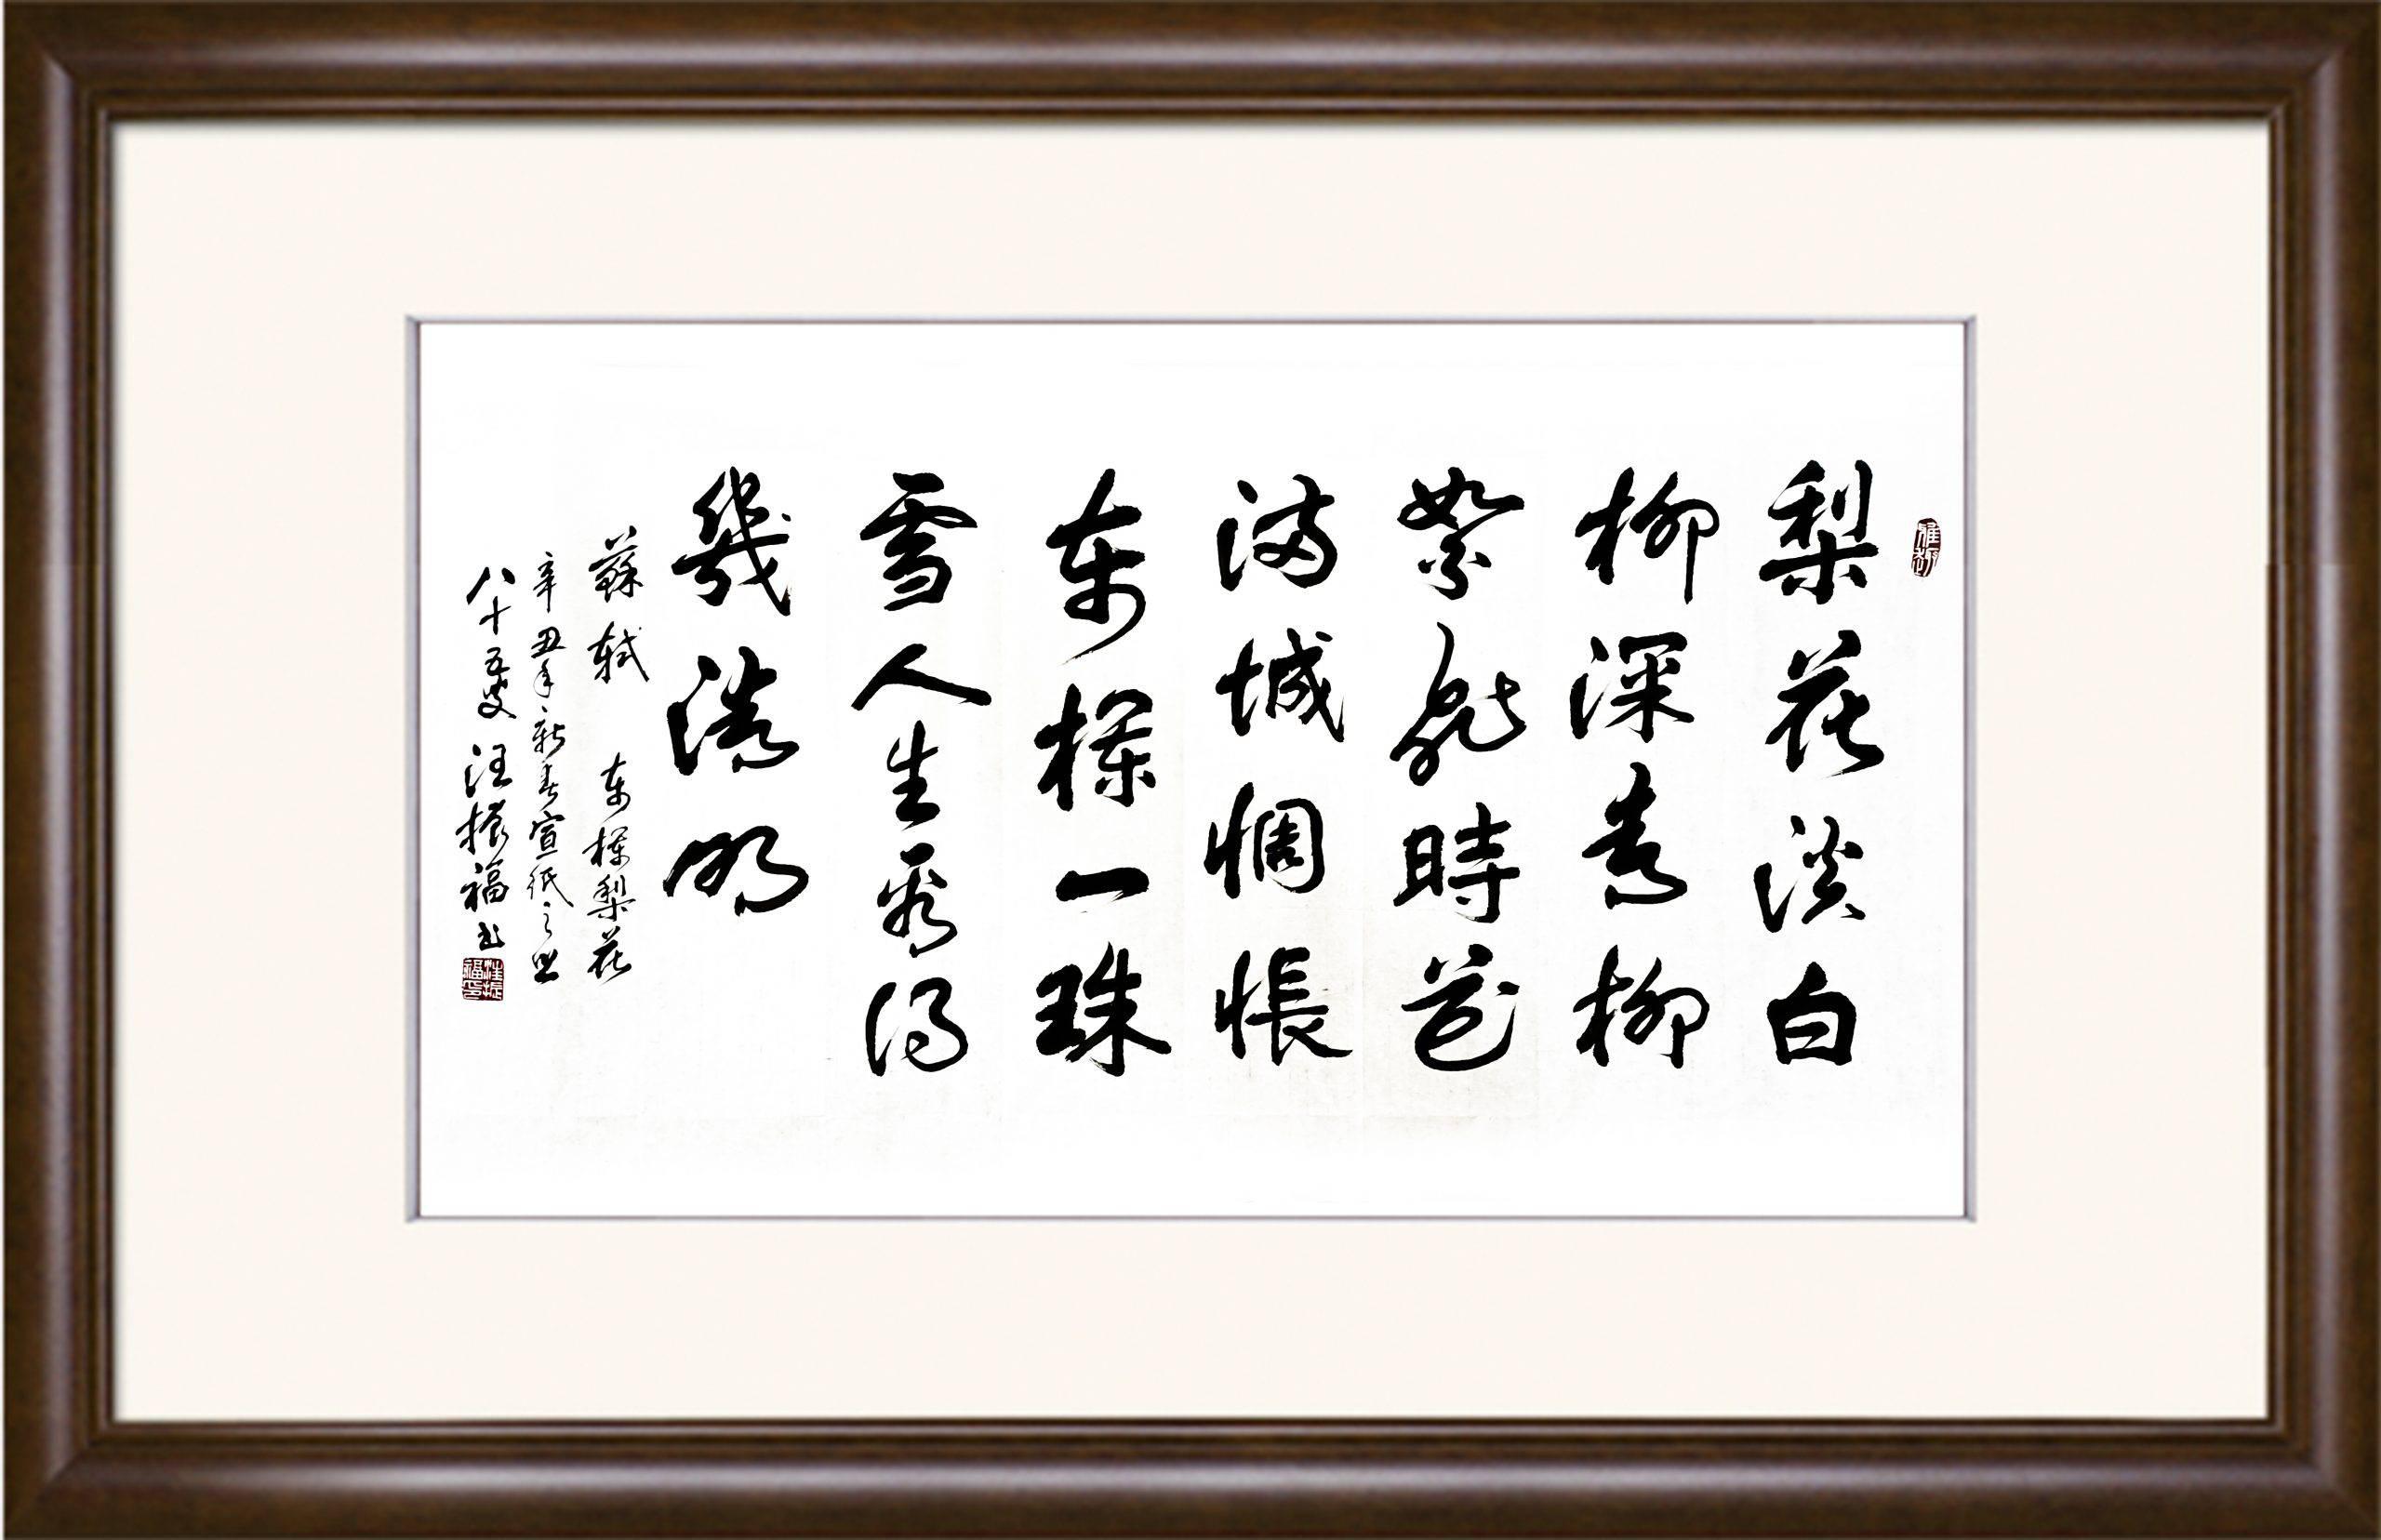 梨花淡白
柳深青柳
絮飛時花
满城惆悵
東欄一珠
雪人生看得
幾清明
蘇軾 東欄梨花
辛丑年新春宣紙之出
八十五叟汪振福书
汪振福印